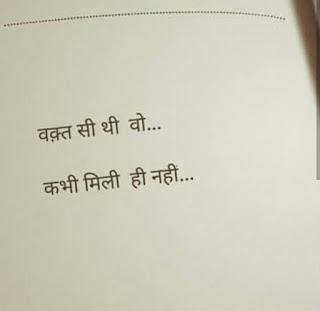 वक़्त सी थी वो...
कभी मिली ही नहीं...